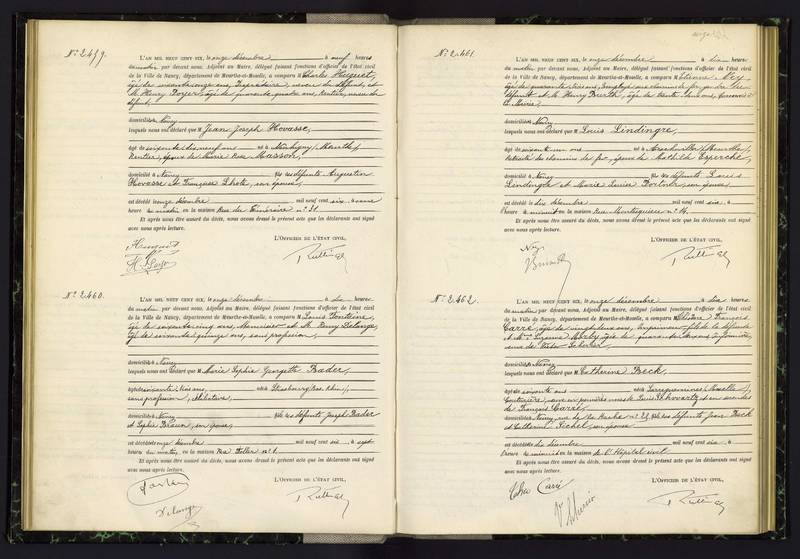 N° 2459.
L'AN MIL NEUF CENT SIX, le onze décembre à neuf heures
du matin par devant nous, Adjoint au Maire, délégué faisant fonctions d'officier de l'état civil
de la Ville de Nancy, département de Meurthe-et-Moselle, a comparu M Charles Huguet,
âgé de ans, du défunt, et
M. Henry Boyer, âgé de quarante quatre ans, Rentier, du
défunt,
domiciliés à Nancy
lesquels nous ont déclaré que M Jean Joseph Hovasse,
âgé de soixante dix neuf ans né à Montigny (Meurthe)
Rentier, époux de Marie Masson,
domicilié à Nancy fils des défunts Augustin
Hovasse et Françoise Lhote, son épouse,
est décédé le onze décembre mil neuf cent six à une
heure du matin en la maison Rue du Téméraire n° 31
Et après nous être assuré du décès, nous avons dressé le présent acte que les déclarants ont signé
avec nous après lecture.
L'OFFICIER DE L'ÉTAT CIVIL,
N° 2460.
L'AN MIL NEUF CENT SIX, le onze décembre à dix heures
du matin par devant nous, Adjoint au Maire, délégué faisant fonctions d'officier de l'état civil
de la Ville de Nancy, département de Meurthe-et-Moselle, a comparu M Louis Fontaine,
âgé de soixante cinq ans, Menuisier et M. Remy Delange,
âgé de soixante quinze ans, sans profession,
domiciliés à Nancy
lesquels nous ont déclaré que M Marie Sophie Georgette Bader,
âgée soixante trois ans, née à Strasbourg (Bas Rhin),
sans profession, célibataire,
domiciliée à Nancy fille des défunts Joseph Bader
et Sophie Braun, son épouse,
est décédée le onze décembre mil neuf cent six à sept
heures du matin en la maison Rue Feller n° 1
Et après nous être assuré du décès, nous avons dressé le présent acte que les déclarants ont signé
avec nous après lecture.
L'OFFICIER DE L'ÉTAT CIVIL,
Delange
N° 2461
L'AN MIL NEUF CENT SIX, le onze décembre à dix heures
du matin par devant nous, Adjoint au Maire, délégué faisant fonctions d'officier de l'état civil
de la Ville de Nancy, département de Meurthe-et-Moselle, a comparu M Etienne Ney
âgé de quarante trois ans, employé aux chemins de fer, du
défunt et M. Henry âgé de trente ans,
la Mairie
domiciliés à Nancy
lesquels nous ont déclaré que M Louis Lindingre,
âgé de soixante un ans né à Arschwiller (Meurthe)
retraité des chemins de fer, époux de Mathilde
domicilié à Nancy fils des défunts Louis
Lindingre et Marie Louise son épouse
est décédé le dix décembre mil neuf cent six à
heure de minuit en la maison Rue Montesquieu n° 14
Et après nous être assuré du décès, nous avons dressé le présent acte que les déclarants ont signé
avec nous après lecture.
L'OFFICIER DE L'ÉTAT CIVIL,
Ney
N° 2462.
L'AN MIL NEUF CENT SIX, le onze décembre à dix heures
du matin par devant nous, Adjoint au Maire, délégué faisant fonctions d'officier de l'état civil
de la Ville de Nancy, département de Meurthe-et-Moselle, a comparu M Théodore François
Carré, âgé de vingt deux ans, Imprimeur, fils de la défunte
et Mme Suzanne âgée de quarante ans, Infirmière,
veuve de Victor Scherrer,
domiciliés à Nancy
lesquels nous ont déclaré que M Catherine Beck,
âgée de soixante ans née à Sarreguemines (Moselle),
Couturière, veuve en premières noces de Louis Schwartz et en secondes
de François Carré,
domiciliée à Nancy, rue de n° 22, fille des défunts Jean Beck
et Catherine son épouse
est décédée le dix décembre mil neuf cent six à
heure de minuit en la maison de l'Hôpital civil
Et après nous être assuré du décès, nous avons dressé le présent acte que les déclarants ont signé
avec nous après lecture.
L'OFFICIER DE L'ÉTAT CIVIL,
Carré